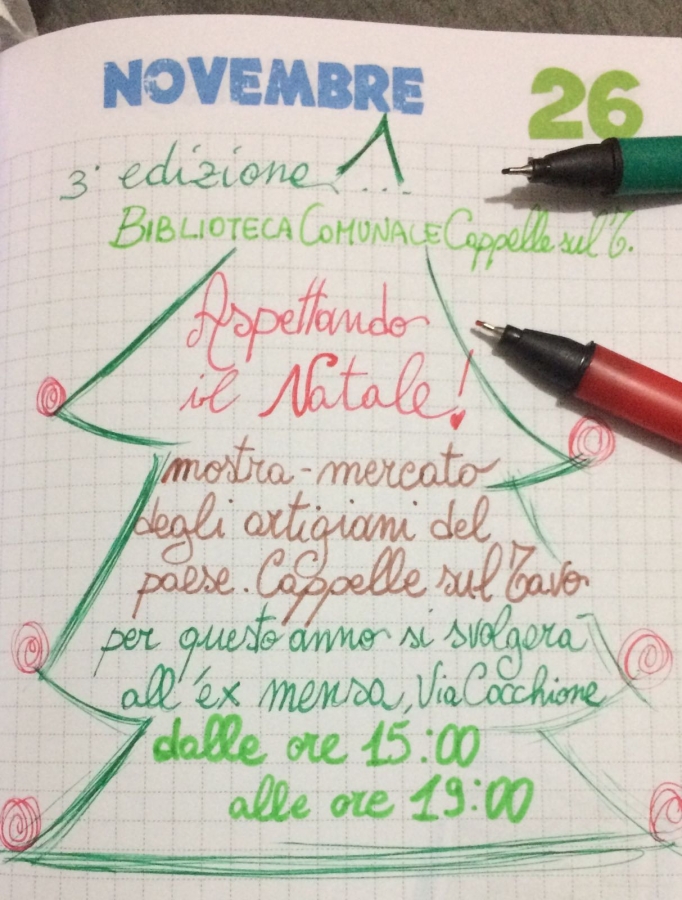 NOVEMBRE 26
3ª edizione...
BIBLIOTECA COMUNALE Cappelle sul T.
Aspettando
il Natale!
mostra-mercato
degli artigiani del
paese. Cappelle sul Tavo
per questo anno si svolgerà
all'ex mensa, Via Cocchione
dalle ore 15:00
alle ore 19:00